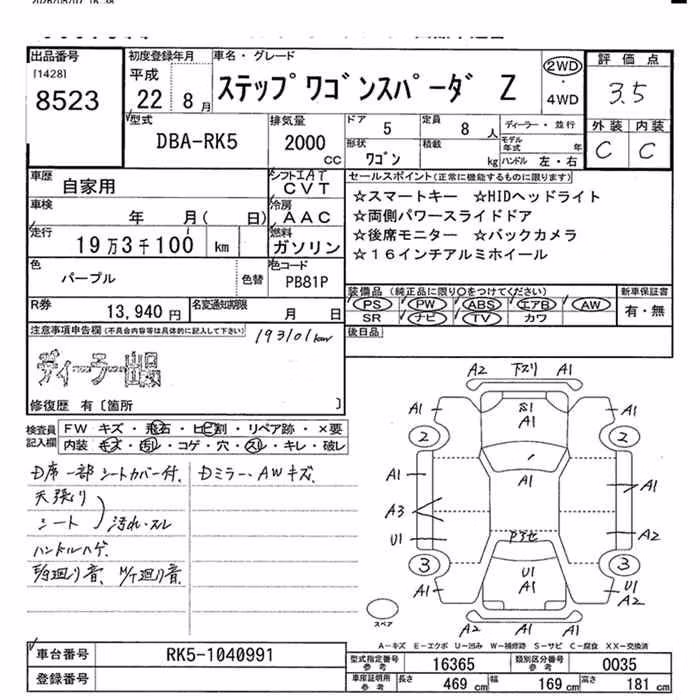 出品番号
[1428]
8523
初度登録年月
平成
22 8月
車名・グレード
ステップワゴンスパーダ Z
2WD
・
4WD
評価点
3.5
外装 内装
C C
型式
DBA-RK5
排気量
2000
CC
ドア 5
定員 8人
ディーラー・並行
形状 ワゴン
積載 kg
モデル年式 年
ハンドル 左・右
車歴
自家用
シフト エAT
CVT
セールスポイント(正常に機能するものに限ります)
☆スマートキー ☆HIDヘッドライト
☆両側パワースライドドア
☆後席モニター ☆バックカメラ
☆16インチアルミホイール
車検
年 月( 日)
冷房
AAC
走行
19万3千100 km
燃料
ガソリン
色
パープル
色替
色コード
PB81P
装備品(純正品に限り〇をつけてください)
PS PW ABS エアB AW
SR ナビ TV カワ
新車保証書
有・無
R券
13,940円
名変通知期限
月 日
後日品
注意事項申告欄(不具合内容等は具体的に記入して下さい)
193101km
ディーラー出品
修復歴 有〔箇所 〕
検査員
記入欄
FW キズ・飛石・ヒビ割・リペア跡・×要
内装 キズ・汚れ・コゲ・穴・スレ・キレ・破レ
D席一部シートカバー付、
Dミラー、AWキズ、
天張り
シート
汚れ・スレ
ハンドルハゲ、
A2 下スリ A1
A1 A1 A1
2 2
A1 A1 A1
A3
U1 A2
3 3
U1
A1
A1 U1
A2
A2 A1
スペア
A-キズ E-エクボ U-凹み W-補修跡 S-サビ C-腐食 XX-交換済
車台番号
RK5-1040991
登録番号
型式指定番号
参考
16365
類別区分番号
参考
0035
車庫証明用
参考
長さ 469cm
幅 169cm
高さ 181cm